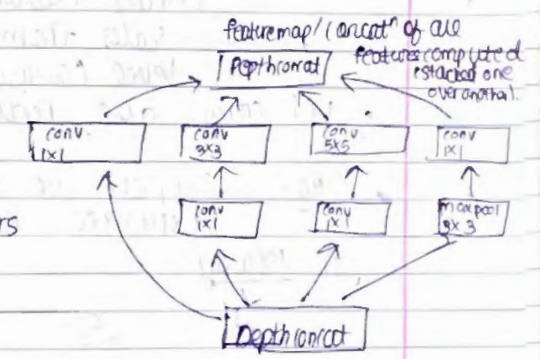 featuremap/(concatⁿ of all
features computed
stacked one
over another.
Depthconcat
conv
1x1
conv
3x3
conv
5x5
conv
1x1
TS
conv
1x1
conv
1x1
maxpool
3x3
Depthconcat